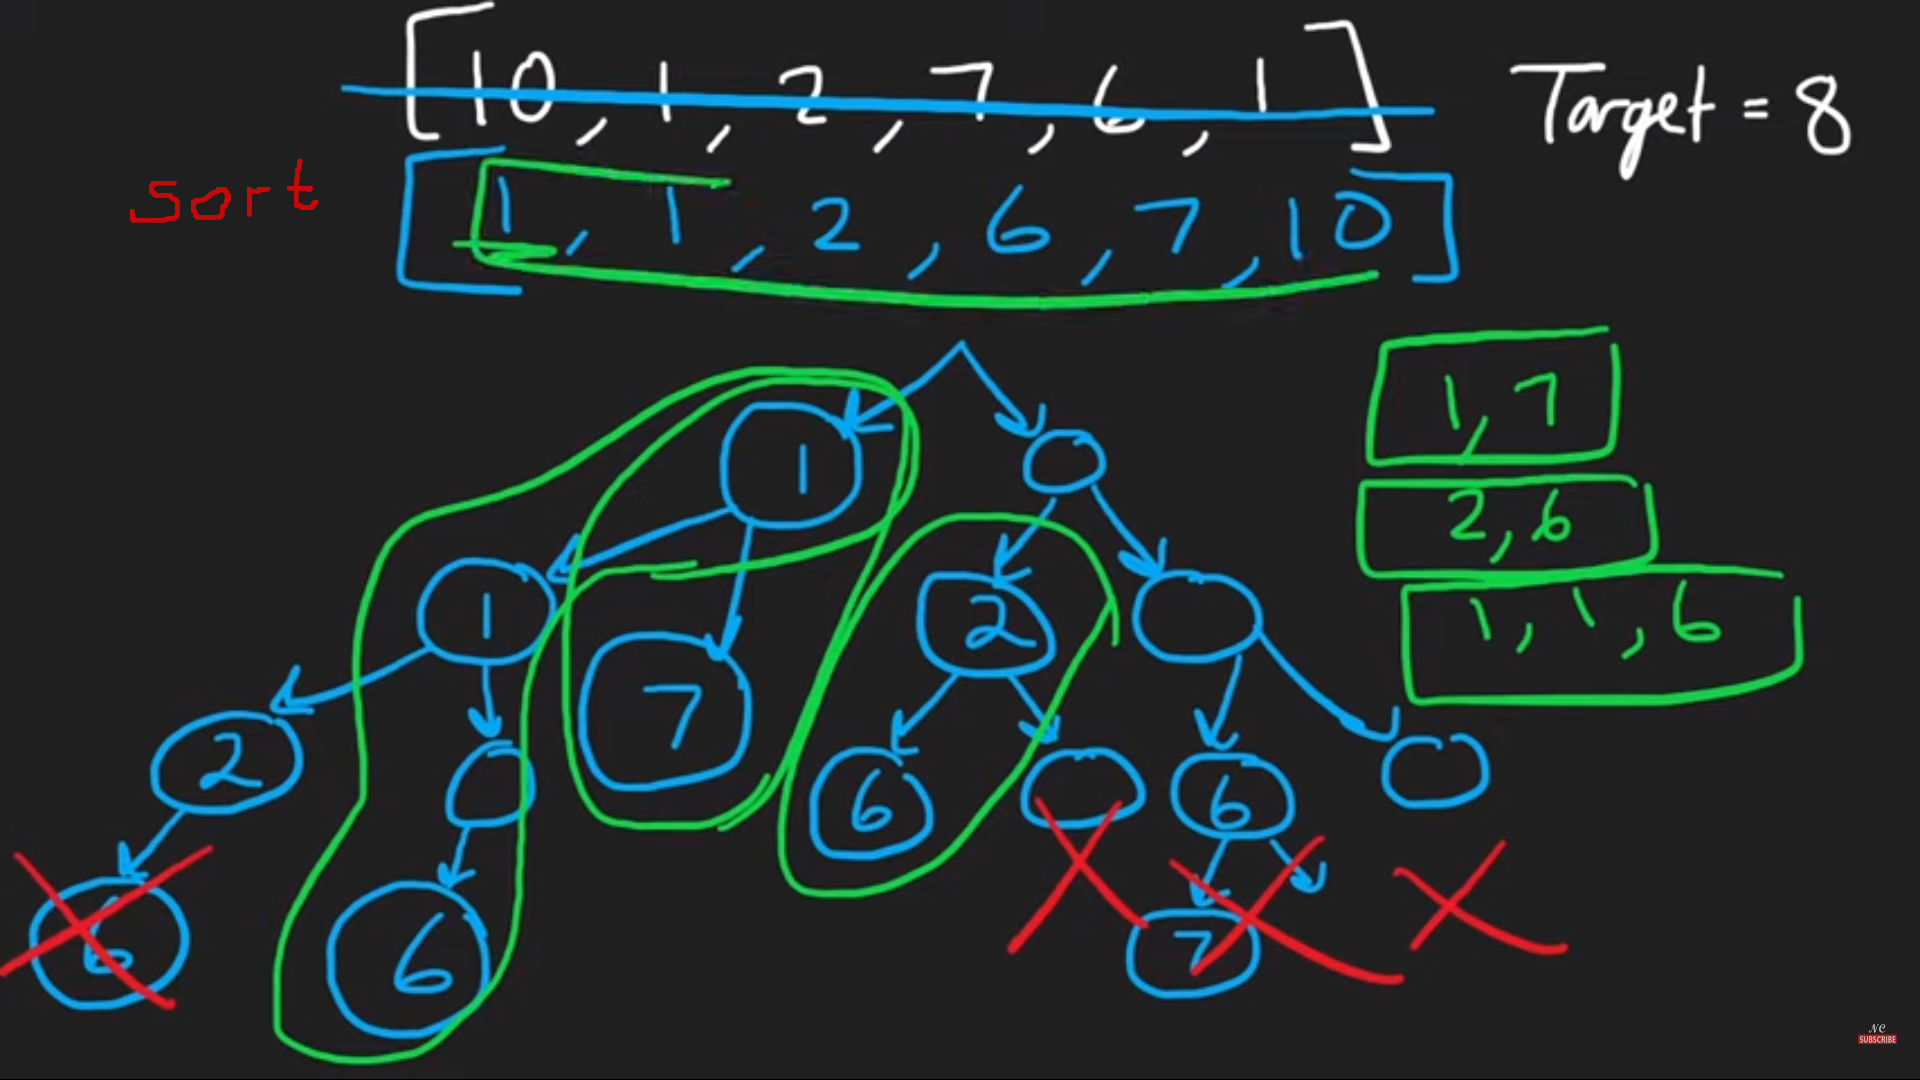 [10, 1, 2, 7, 6, 1] Target = 8
sort [1, 1, 2, 6, 7, 10]
1, 7
1
2, 6
1 7 2
1, 1, 6
2 6 6
6 6 7
NC
SUBSCRIBE